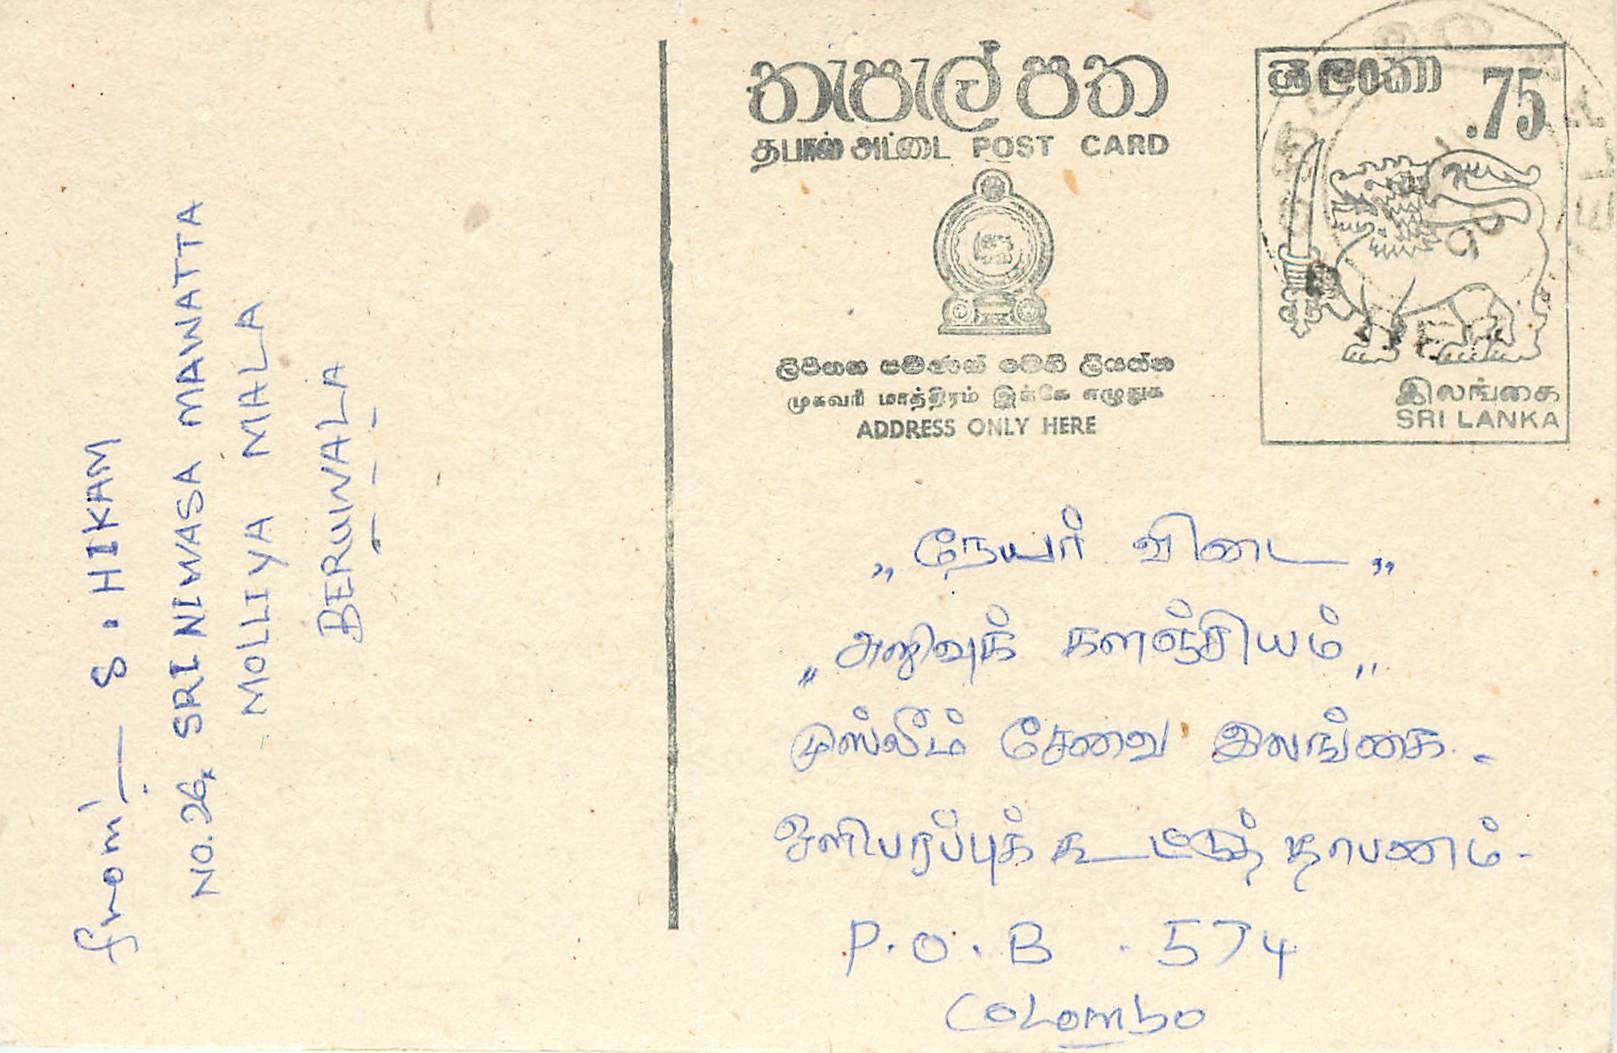 from:- S. HIKAM
NO. 26, SRI NIWASA MAWATTA
MOLLIYA MALA
BERUWALA
තැපැල් පත
தபால் அட்டை POST CARD
ලිපිනය පමණක් මෙහි ලියන්න
முகவரி மாத்திரம் இங்கே எழுதுக
ADDRESS ONLY HERE
ශ්‍රී ලංකා .75
இலங்கை
SRI LANKA
„நேயர் விடை„
„அறிவுக் களஞ்சியம்„
முஸ்லீம் சேவை இலங்கை.
ஒலிபரப்புக் கூட்டுத் தாபனம்.
P.O.B. 574
Colombo